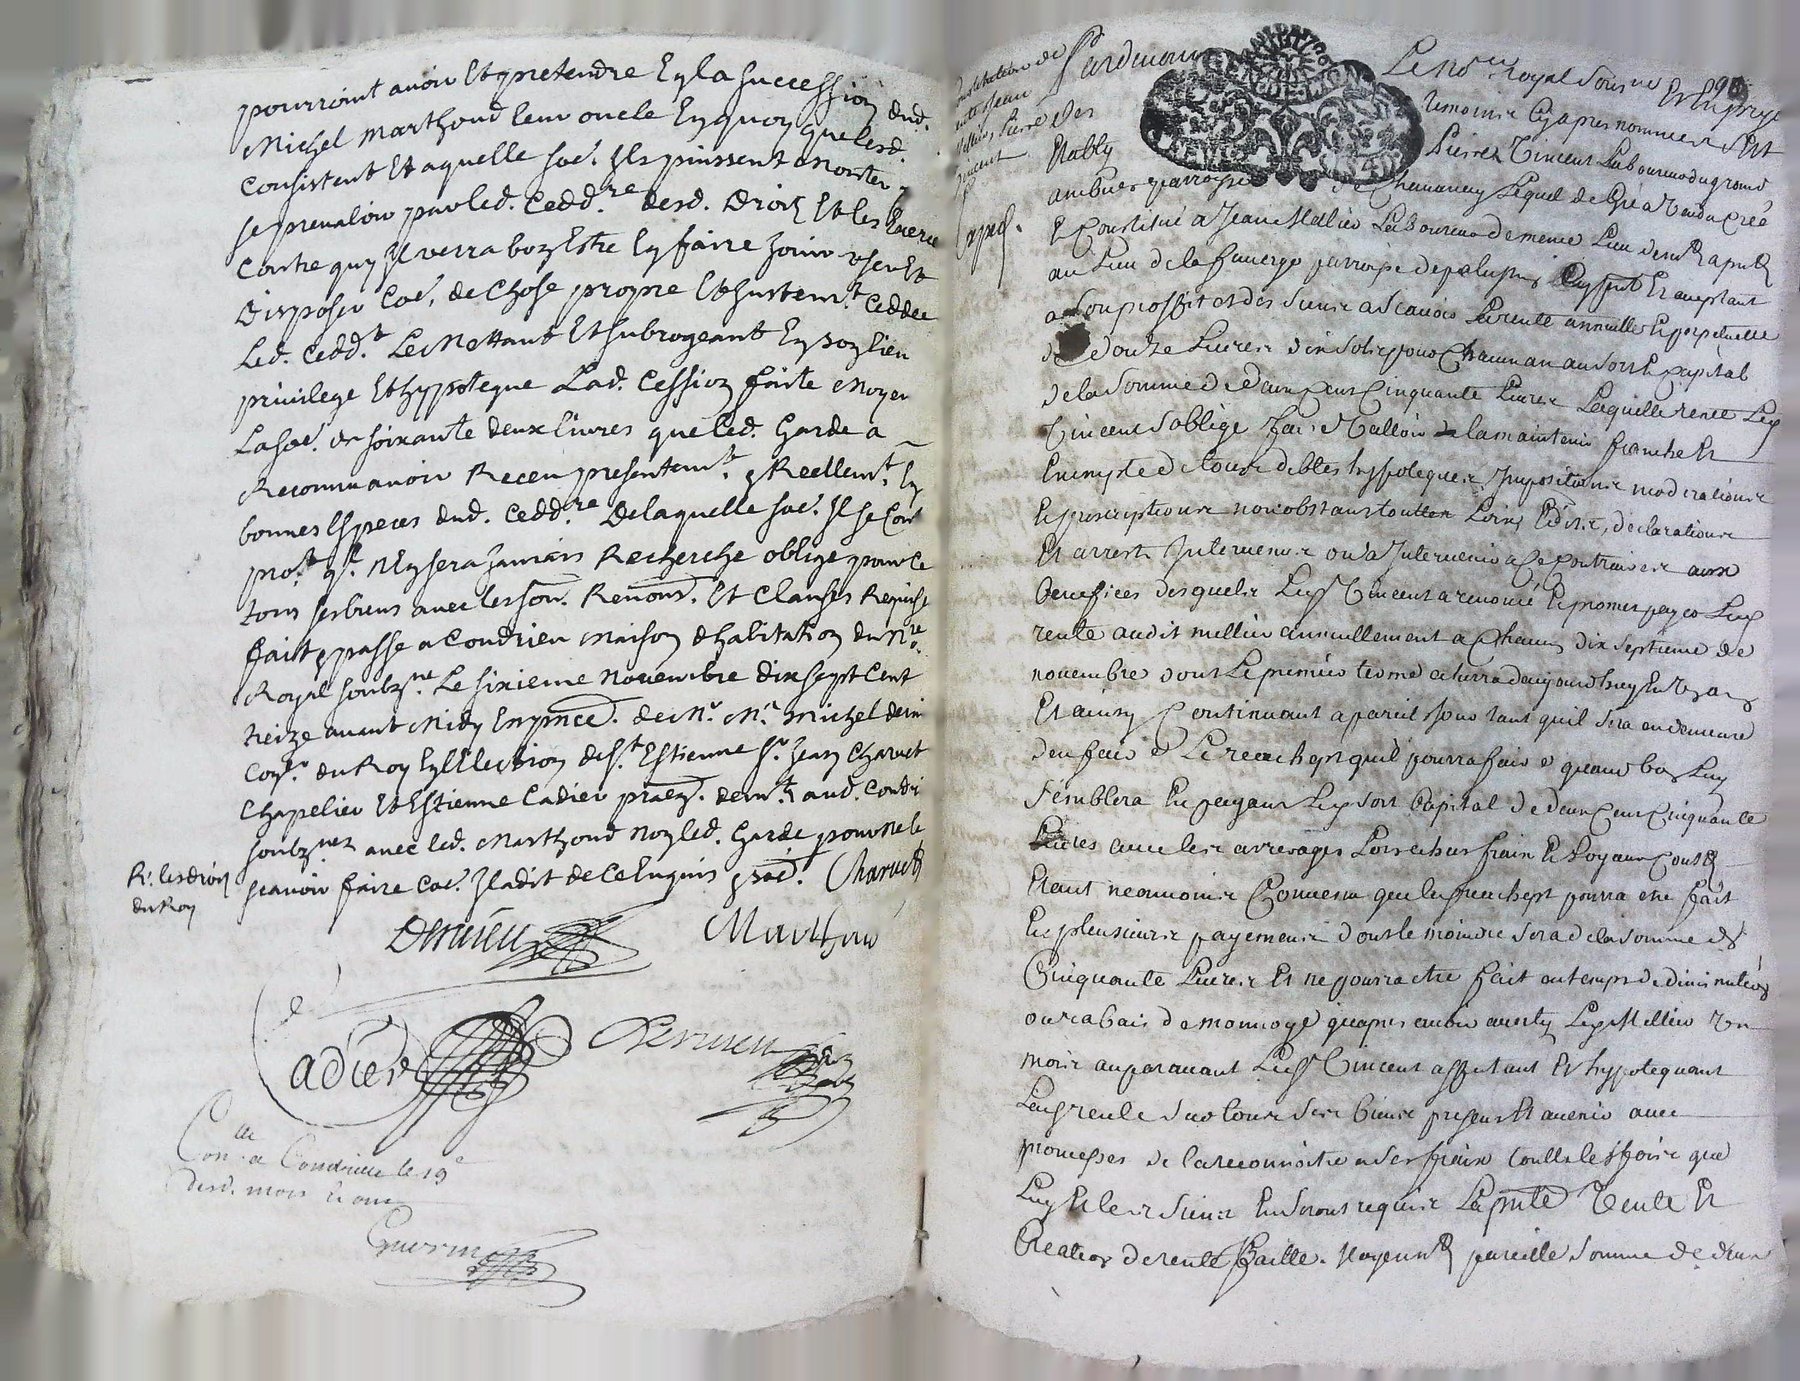 pourroint avoir Et pretendre En la Succession dud.
Michel Marthoud leur oncle En quoy que lesd.
Consistent Et a quelle soe. Ils puissent Monter
se prevaloir par led. Cedd.re desd. Droits Et les Exercer
Contre quy Il verra bon Estre En faire Jouir user Et
Disposer Coe. de Chose propre Et Justem.t Ceddee
Led. Cedd.t Le Mettant Et subrogeant En son lieu
privilege Et hyppoteque Lad. Cession faite Moyen
La soe. de soixante deux livres que led. Garde a
Reconnu avoir Receu presentem.t & Reellem.t En
bonnes Especes dud. Cedd.re De laquelle soe. Il se Cont
pro.t q.l N'en sera Jamais Recherché obligé pour Ce
tous ses biens avec les son. Renon. Et Clauses Requise
fait & passé a Condrieu Maison d'habitation du N.re
Royal soubz.né Le sixieme Novembre dix sept Cent
treize avant Midy En p.nce. de M.r M.e Michel
Con.er du Roy En l'Election de S.t Estienne S.r Jean Charvet
Chapelier Et Estienne Cadier de m.t aud. Condri
soubz.nez avec led. Marthoud Non led. Garde pour ne le
scavoir faire Coe. Il a dit de Ce Enquis Charvet
R. les droits
du Roy
Marthoud
Cadier
Con.lle a Condrieu le 19e
desd. mois & an
Constitution de
rente Jean
Mellier Pierre
Vincent
exped.
90
Pardevant Le No.re royal Sous.né Et En pre
des temoins cy apres nommes Est
Etably Pierre Vincent Laboureur du grand
ambuer parroisse de Chavanay Lequel de gré a vendu créé
Et Constitué a Jean Mellier Laboureur demeu
au Lieu de la faverge parroisse de pelussin Et aceptant
a son proffit et des siens a scavoir La rente annuelle Et perpetuelle
de douze Livres dix sols pour Chacun an au sort Et Capital
de la somme de deux Cent Cinquante Livres Laquelle rente Led.
Vincent s'oblige faire valloir la maintenir franche Et
Exempte de tous debtes hypoteques Impositions moderations
Et prescriptions nonobstant tout Edits, declarations
Et arrests Intervenus ou a Intervenir a Ce Contraires aux
benefices desquels Led. Vincent a renoncé Et promet payer Lad.
rente audit mellier annuellement a Chacun dix septieme de
novembre dont Le premier terme echerra d'aujourdhuy En un an
Et ainsy Continuant a pareil Jour tant quil sera en demeure
d'en faire Le reachept quil pourra faire quand bon Luy
semblera En payant Led. sort Capital de deux Cent Cinquante
Livres avec les arrerages Lors echus frais Et Loyaux Couts
Etant neanmoins Convenu que Led. reachept pourra etre fait
En plusieurs payements dont le moindre sera de la somme de
Cinquante Livres Et ne pourra etre fait en temps de diminution
ou rabais de monnoye qu'apres avoir averty Led. Mellier un
mois auparavant Led. Vincent assurant Et hypotequant
Lad. rente sur tous ses biens presens Et avenir avec
promesses de la reconnoitre a ses frais toutes les fois que
Luy Et les siens En seront requis La p.nte vente Et
Creation de rente faitte. Moyenn.t pareille somme de deux